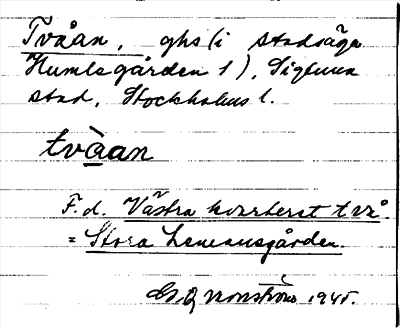 Tvåan, ghs (i stadsäga
Humlegården 1), Sigtuna
stad, Stockholms l.
tvàan
F.d. Västra kvarteret två
= Stora Leneansgården.
1945.